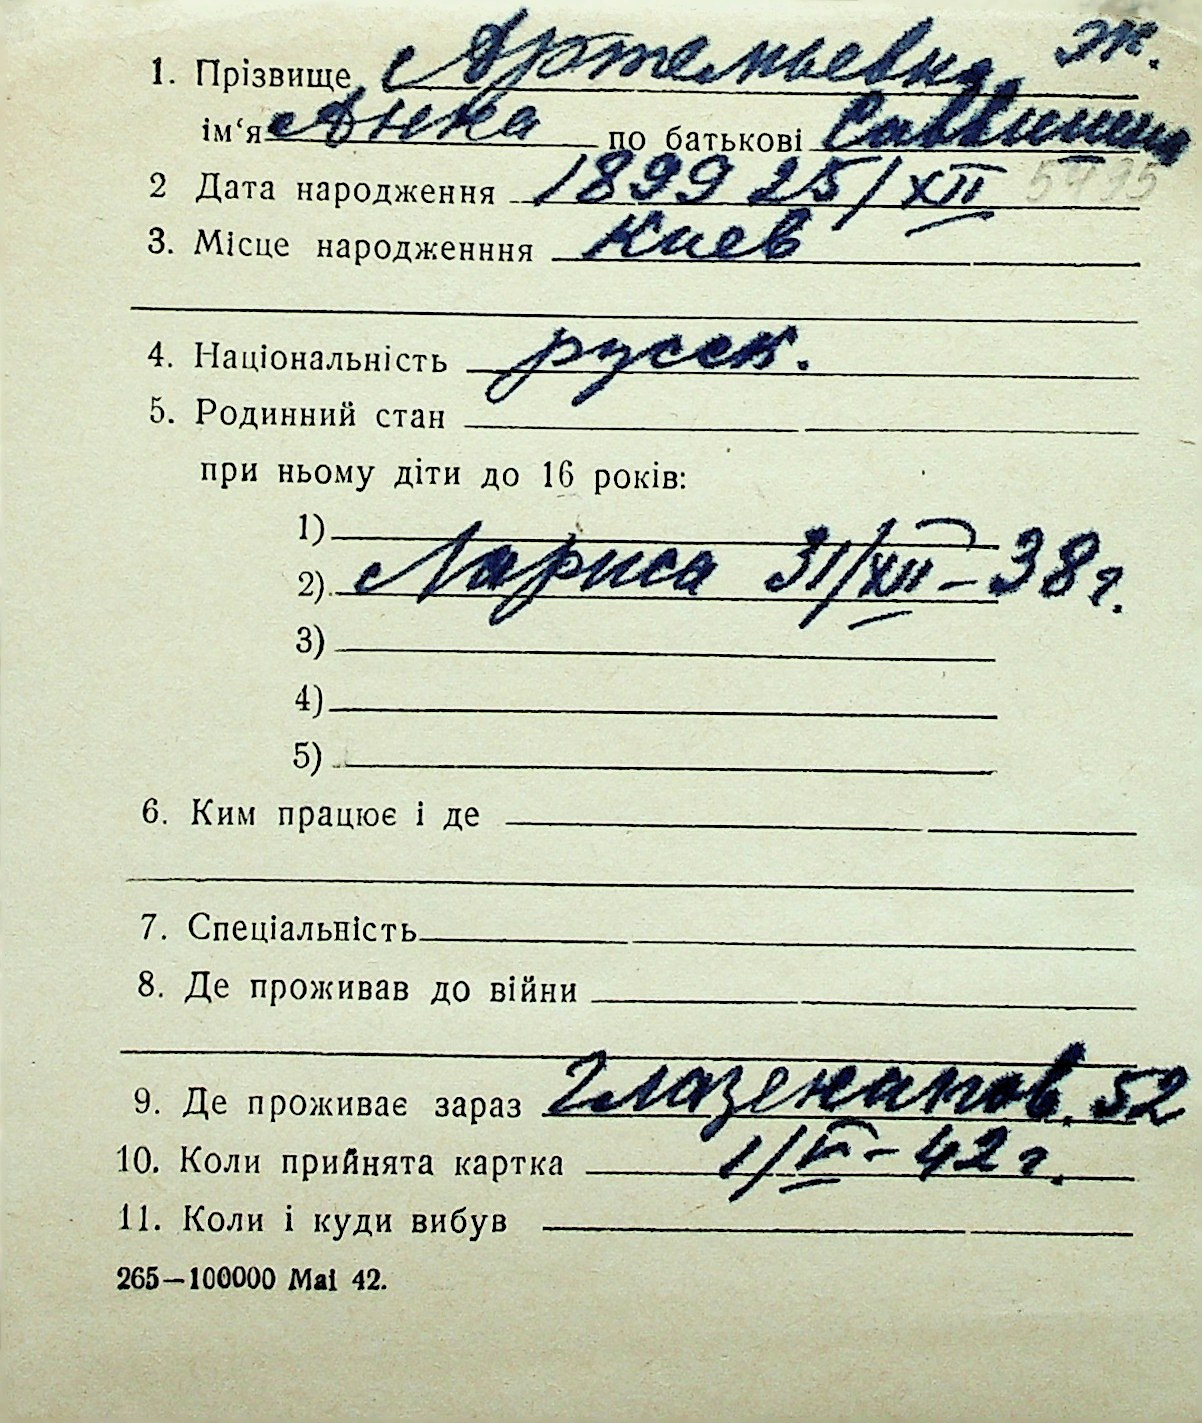 ж.
1. Прізвище Артемьевна
ім‘я Анна по батькові Саввишна
2 Дата народження 1899 25/XII 5495
3. Місце народженння Киев
4. Національність русск.
5. Родинний стан
при ньому діти до 16 років:
1)
2) Лариса 31/XII – 38 г.
3)
4)
5)
6. Ким працює і де
7. Спеціальність
8. Де проживав до війни
9. Де проживає зараз Глазенапов. 52
10. Коли прийнята картка 1/V – 42 г.
11. Коли і куди вибув
265—100000 Mai 42.